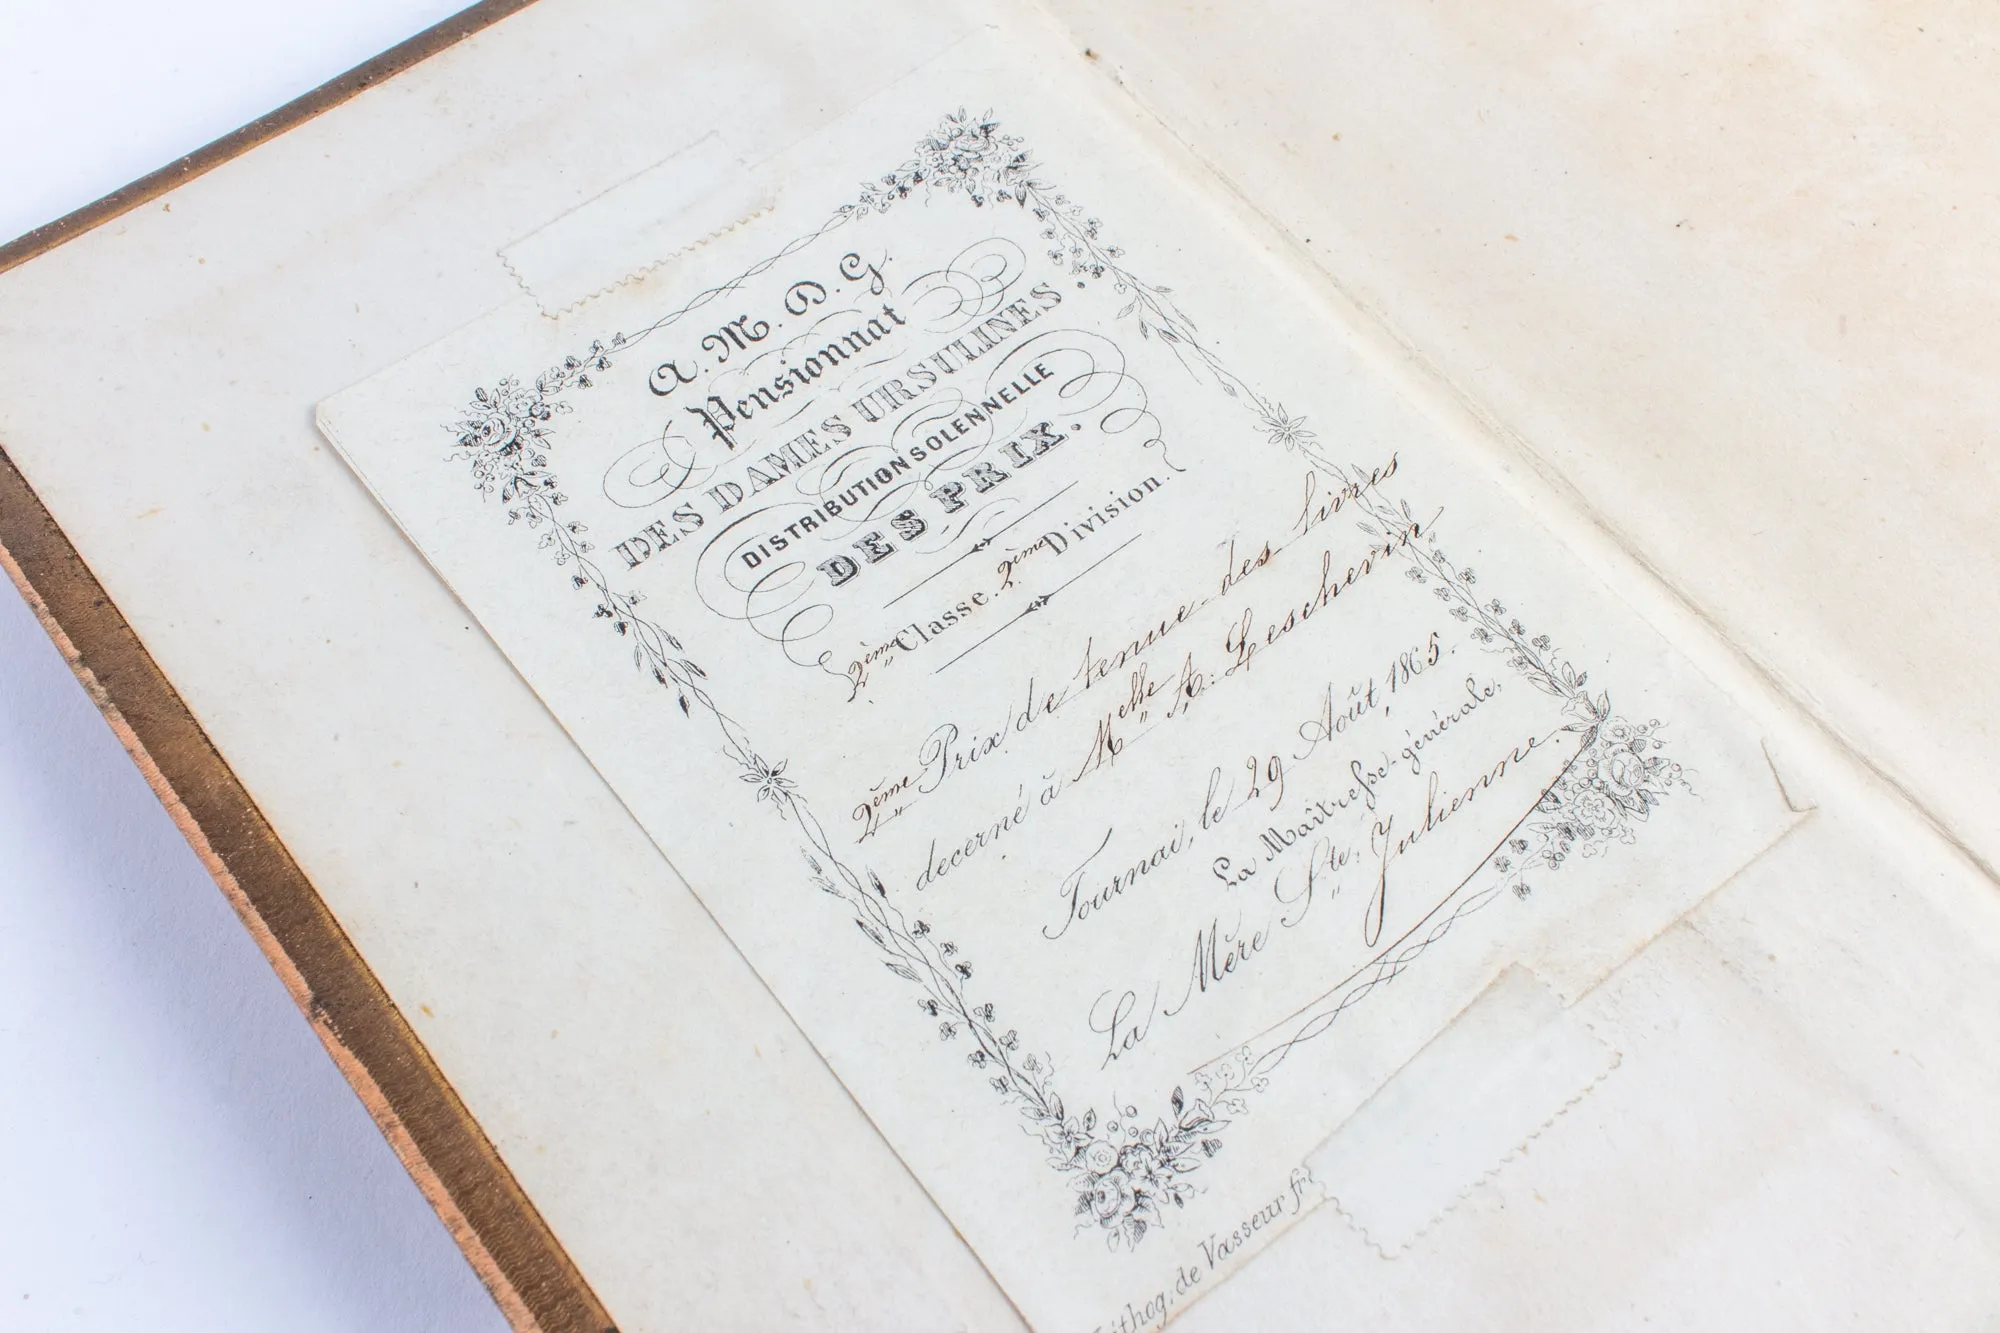 A. M. D. G.
Pensionnat
DES DAMES URSULINES.
DISTRIBUTION SOLENNELLE
DES PRIX.
2ème Classe. 2ème Division.
2ème Prix de tenue des livres
decerné à Melle A. Leschevin
Tournai, le 29 Août, 1865.
La Maîtresse-générale,
La Mère Ste. Julienne.
Lithog: de Vasseur fr